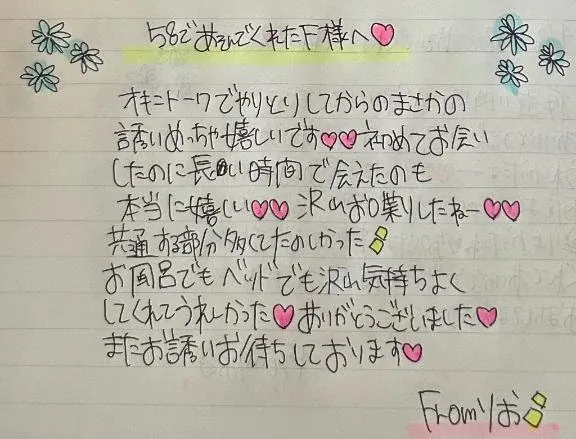 58であそんでくれたF様へ♥
オキニトークでやりとりしてからのまさかの
誘いめっちゃ嬉しいです♥♥初めてお会い
したのに長い時間で会えたのも
本当に嬉しい♥♥沢山お喋りしたねー♥♥
共通する部分多くてたのしかった
お風呂でもベッドでも沢山気持ちよく
してくれてうれしかった♥ありがとうございました♥
またお誘いお待ちしております♥
Fromりお